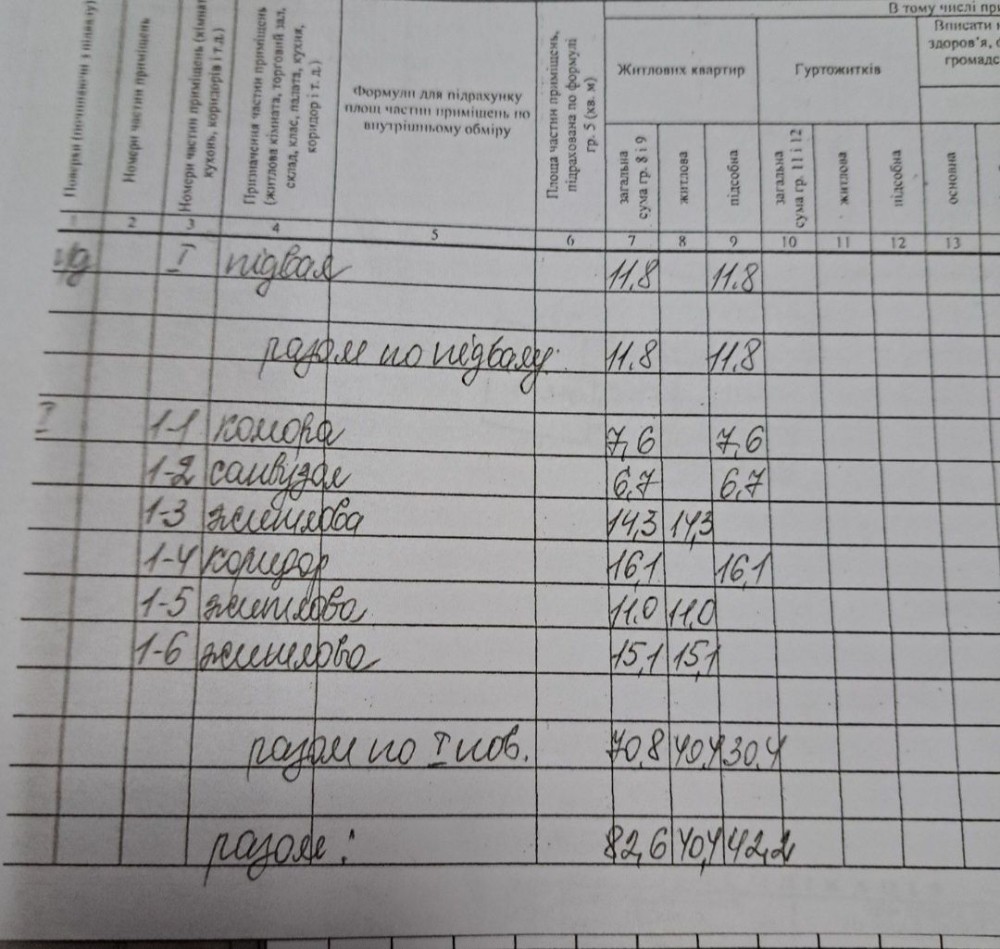 В тому числі при
Вписати н
здоров'я, с
громадс
Житлових квартир
Гуртожитків
Поверхи (починаючи з підвалу)
Номери частин приміщень
Номери частин приміщень (кімнат
кухонь, коридорів і т.д.)
Призначення частин приміщень
(житлова кімната, торговий зал,
склад, клас, палата, кухня,
коридор і т. д.)
Формули для підрахунку
площ частин приміщень по
внутрішньому обміру
Площа частин приміщень,
підрахована по формулі
гр. 5 (кв. м)
загальна
сума гр. 8 і 9
житлова
підсобна
загальна
сума гр. 11 і 12
житлова
підсобна
основна
1 2 3 4 5 6 7 8 9 10 11 12 13
I підвал 11.8 11.8
разом по підвалу: 11.8 11.8
I 1-1 комора 7,6 7,6
1-2 санвузол 6,7 6,7
1-3 житлова 14,3 14,3
1-4 коридор 16,1 16,1
1-5 житлова 11.0 11,0
1-6 житлова 15,1 15,1
разом по I пов. 70,8 40,4 30,4
разом: 82,6 40,4 42,2